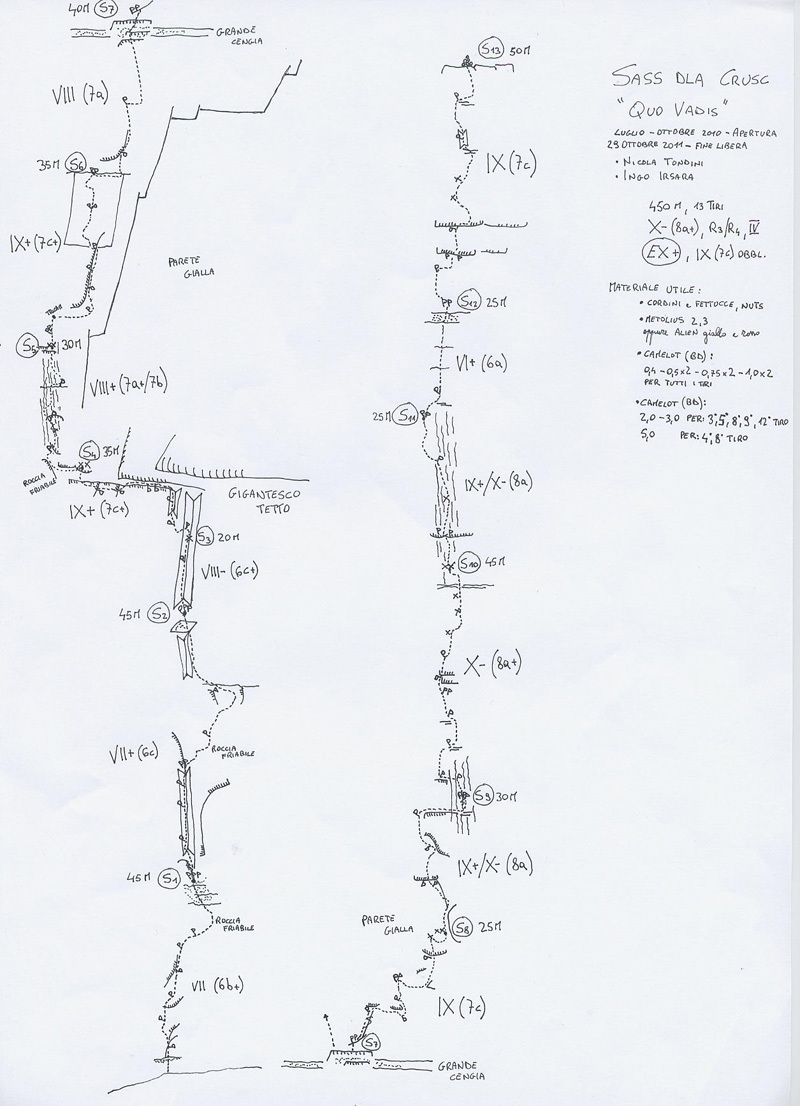 40M S7
GRANDE
CENGIA
VIII (7a)
35M S6
IX+ (7c+)
PARETE
GIALLA
S5 30M
VIII+ (7a+/7b)
S4 35M
ROCCIA
FRIABILE
IX+ (7c+)
GIGANTESCO
TETTO
S3 20M
VIII- (6c+)
45M S2
VII+ (6c)
ROCCIA
FRIABILE
45M S1
ROCCIA
FRIABILE
VII (6b+)
S13 50M
IX (7c)
S12 25M
VI+ (6a)
25M S11
IX+/X- (8a)
S10 45M
X- (8a+)
S9 30M
IX+/X- (8a)
PARETE
GIALLA
S8 25M
IX (7c)
S7
GRANDE
CENGIA
SASS DLA CRUSC
"QUO VADIS"
LUGLIO - OTTOBRE 2010 - APERTURA
29 OTTOBRE 2011 - FINE LIBERA
• NICOLA TONDINI
• INGO IRSARA
450 M, 13 TIRI
X- (8a+), R3/R4, IV
EX+, IX (7c) OBBL.
MATERIALE UTILE:
• CORDINI e FETTUCCE, NUTS
• METOLIUS 2,3
oppure ALIEN giallo e rosso
• CAMELOT (BD):
0,4 - 0,5x2 - 0,75x2 - 1,0x2
PER TUTTI I TIRI
• CAMELOT (BD):
2,0 - 3,0 PER: 3°,5°, 8°, 9°, 12° TIRO
5,0 PER: 4°, 8° TIRO